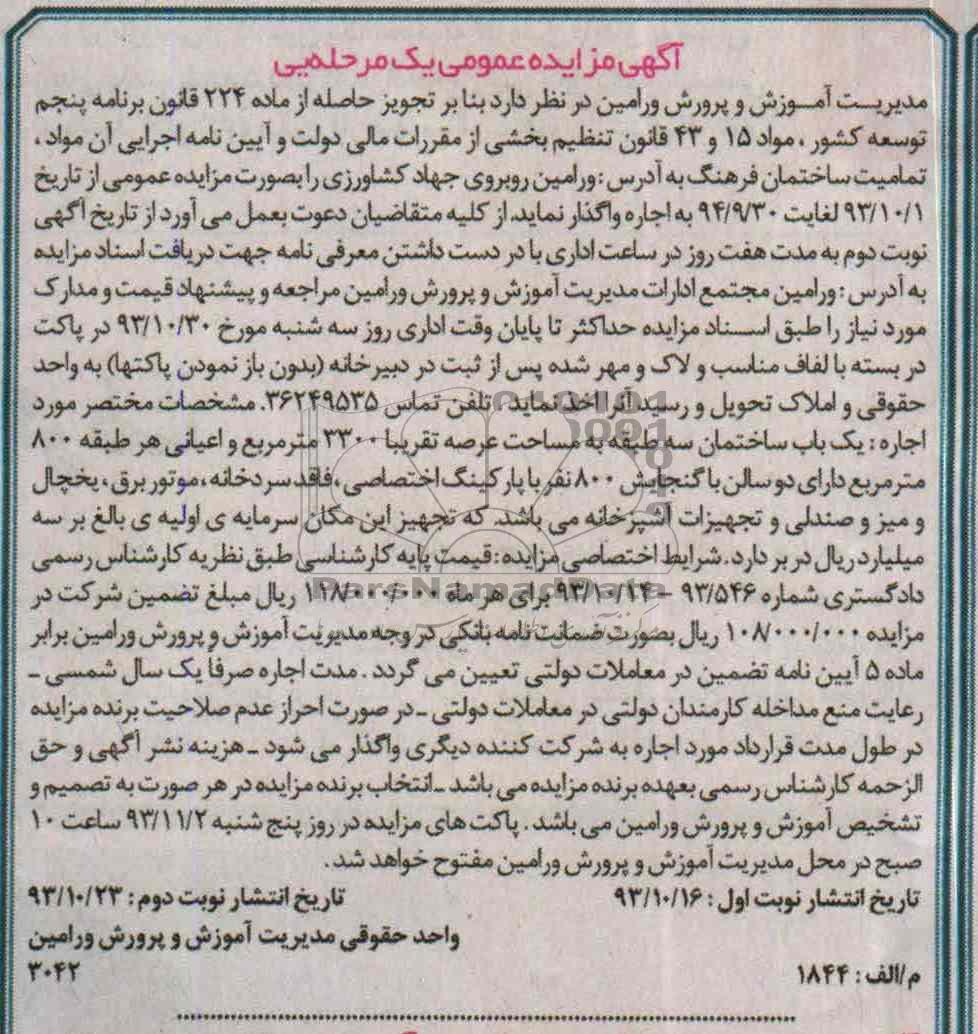 آگهی مزایده عمومی یک مرحله‌یی
مدیریت آموزش و پرورش ورامین در نظر دارد بنا بر تجویز حاصله از ماده ۲۲۴ قانون برنامه پنجم
توسعه کشور ، مواد ۱۵ و ۴۳ قانون تنظیم بخشی از مقررات مالی دولت و آیین نامه اجرایی آن مواد ،
تمامیت ساختمان فرهنگ به آدرس : ورامین روبروی جهاد کشاورزی را بصورت مزایده عمومی از تاریخ
۹۳/۱۰/۱ لغایت ۹۴/۹/۳۰ به اجاره واگذار نماید. از کلیه متقاضیان دعوت بعمل می آورد از تاریخ آگهی
نوبت دوم به مدت هفت روز در ساعت اداری با در دست داشتن معرفی نامه جهت دریافت اسناد مزایده
به آدرس : ورامین مجتمع ادارات مدیریت آموزش و پرورش ورامین مراجعه و پیشنهاد قیمت و مدارک
مورد نیاز را طبق اسناد مزایده حداکثر تا پایان وقت اداری روز سه شنبه مورخ ۹۳/۱۰/۳۰ در پاکت
در بسته با لفاف مناسب و لاک و مهر شده پس از ثبت در دبیرخانه (بدون باز نمودن پاکتها) به واحد
حقوقی و املاک تحویل و رسید آنرا اخذ نماید . تلفن تماس ۳۶۲۴۹۵۳۵. مشخصات مختصر مورد
اجاره : یک باب ساختمان سه طبقه به مساحت عرصه تقریبا ۳۳۰۰ مترمربع و اعیانی هر طبقه ۸۰۰
مترمربع دارای دو سالن با گنجایش ۸۰۰ نفر با پارکینگ اختصاصی ، فاقد سردخانه ، موتور برق ، یخچال
و میز و صندلی و تجهیزات آشپزخانه می باشد. که تجهیز این مکان سرمایه ی اولیه ی بالغ بر سه
میلیارد ریال در بر دارد . شرایط اختصاصی مزایده : قیمت پایه کارشناسی طبق نظریه کارشناس رسمی
دادگستری شماره ۹۳/۵۴۶ – ۹۳/۱۰/۱۴ برای هر ماه ۱۱۸/۰۰۰/۰۰۰ ریال مبلغ تضمین شرکت در
مزایده ۱۰۸/۰۰۰/۰۰۰ ریال بصورت ضمانت نامه بانکی در وجه مدیریت آموزش و پرورش ورامین برابر
ماده ۵ آیین نامه تضمین در معاملات دولتی تعیین می گردد . مدت اجاره صرفاً یک سال شمسی ـ
رعایت منع مداخله کارمندان دولتی در معاملات دولتی ـ در صورت احراز عدم صلاحیت برنده مزایده
در طول مدت قرارداد مورد اجاره به شرکت کننده دیگری واگذار می شود ـ هزینه نشر آگهی و حق
الزحمه کارشناس رسمی بعهده برنده مزایده می باشد ـ انتخاب برنده مزایده در هر صورت به تصمیم و
تشخیص آموزش و پرورش ورامین می باشد . پاکت های مزایده در روز پنج شنبه ۹۳/۱۱/۲ ساعت ۱۰
صبح در محل مدیریت آموزش و پرورش ورامین مفتوح خواهد شد .
تاریخ انتشار نوبت اول : ۹۳/۱۰/۱۶ تاریخ انتشار نوبت دوم : ۹۳/۱۰/۲۳
واحد حقوقی مدیریت آموزش و پرورش ورامین
م/الف : ۱۸۴۴ ۳۰۴۲
ParsNamadData